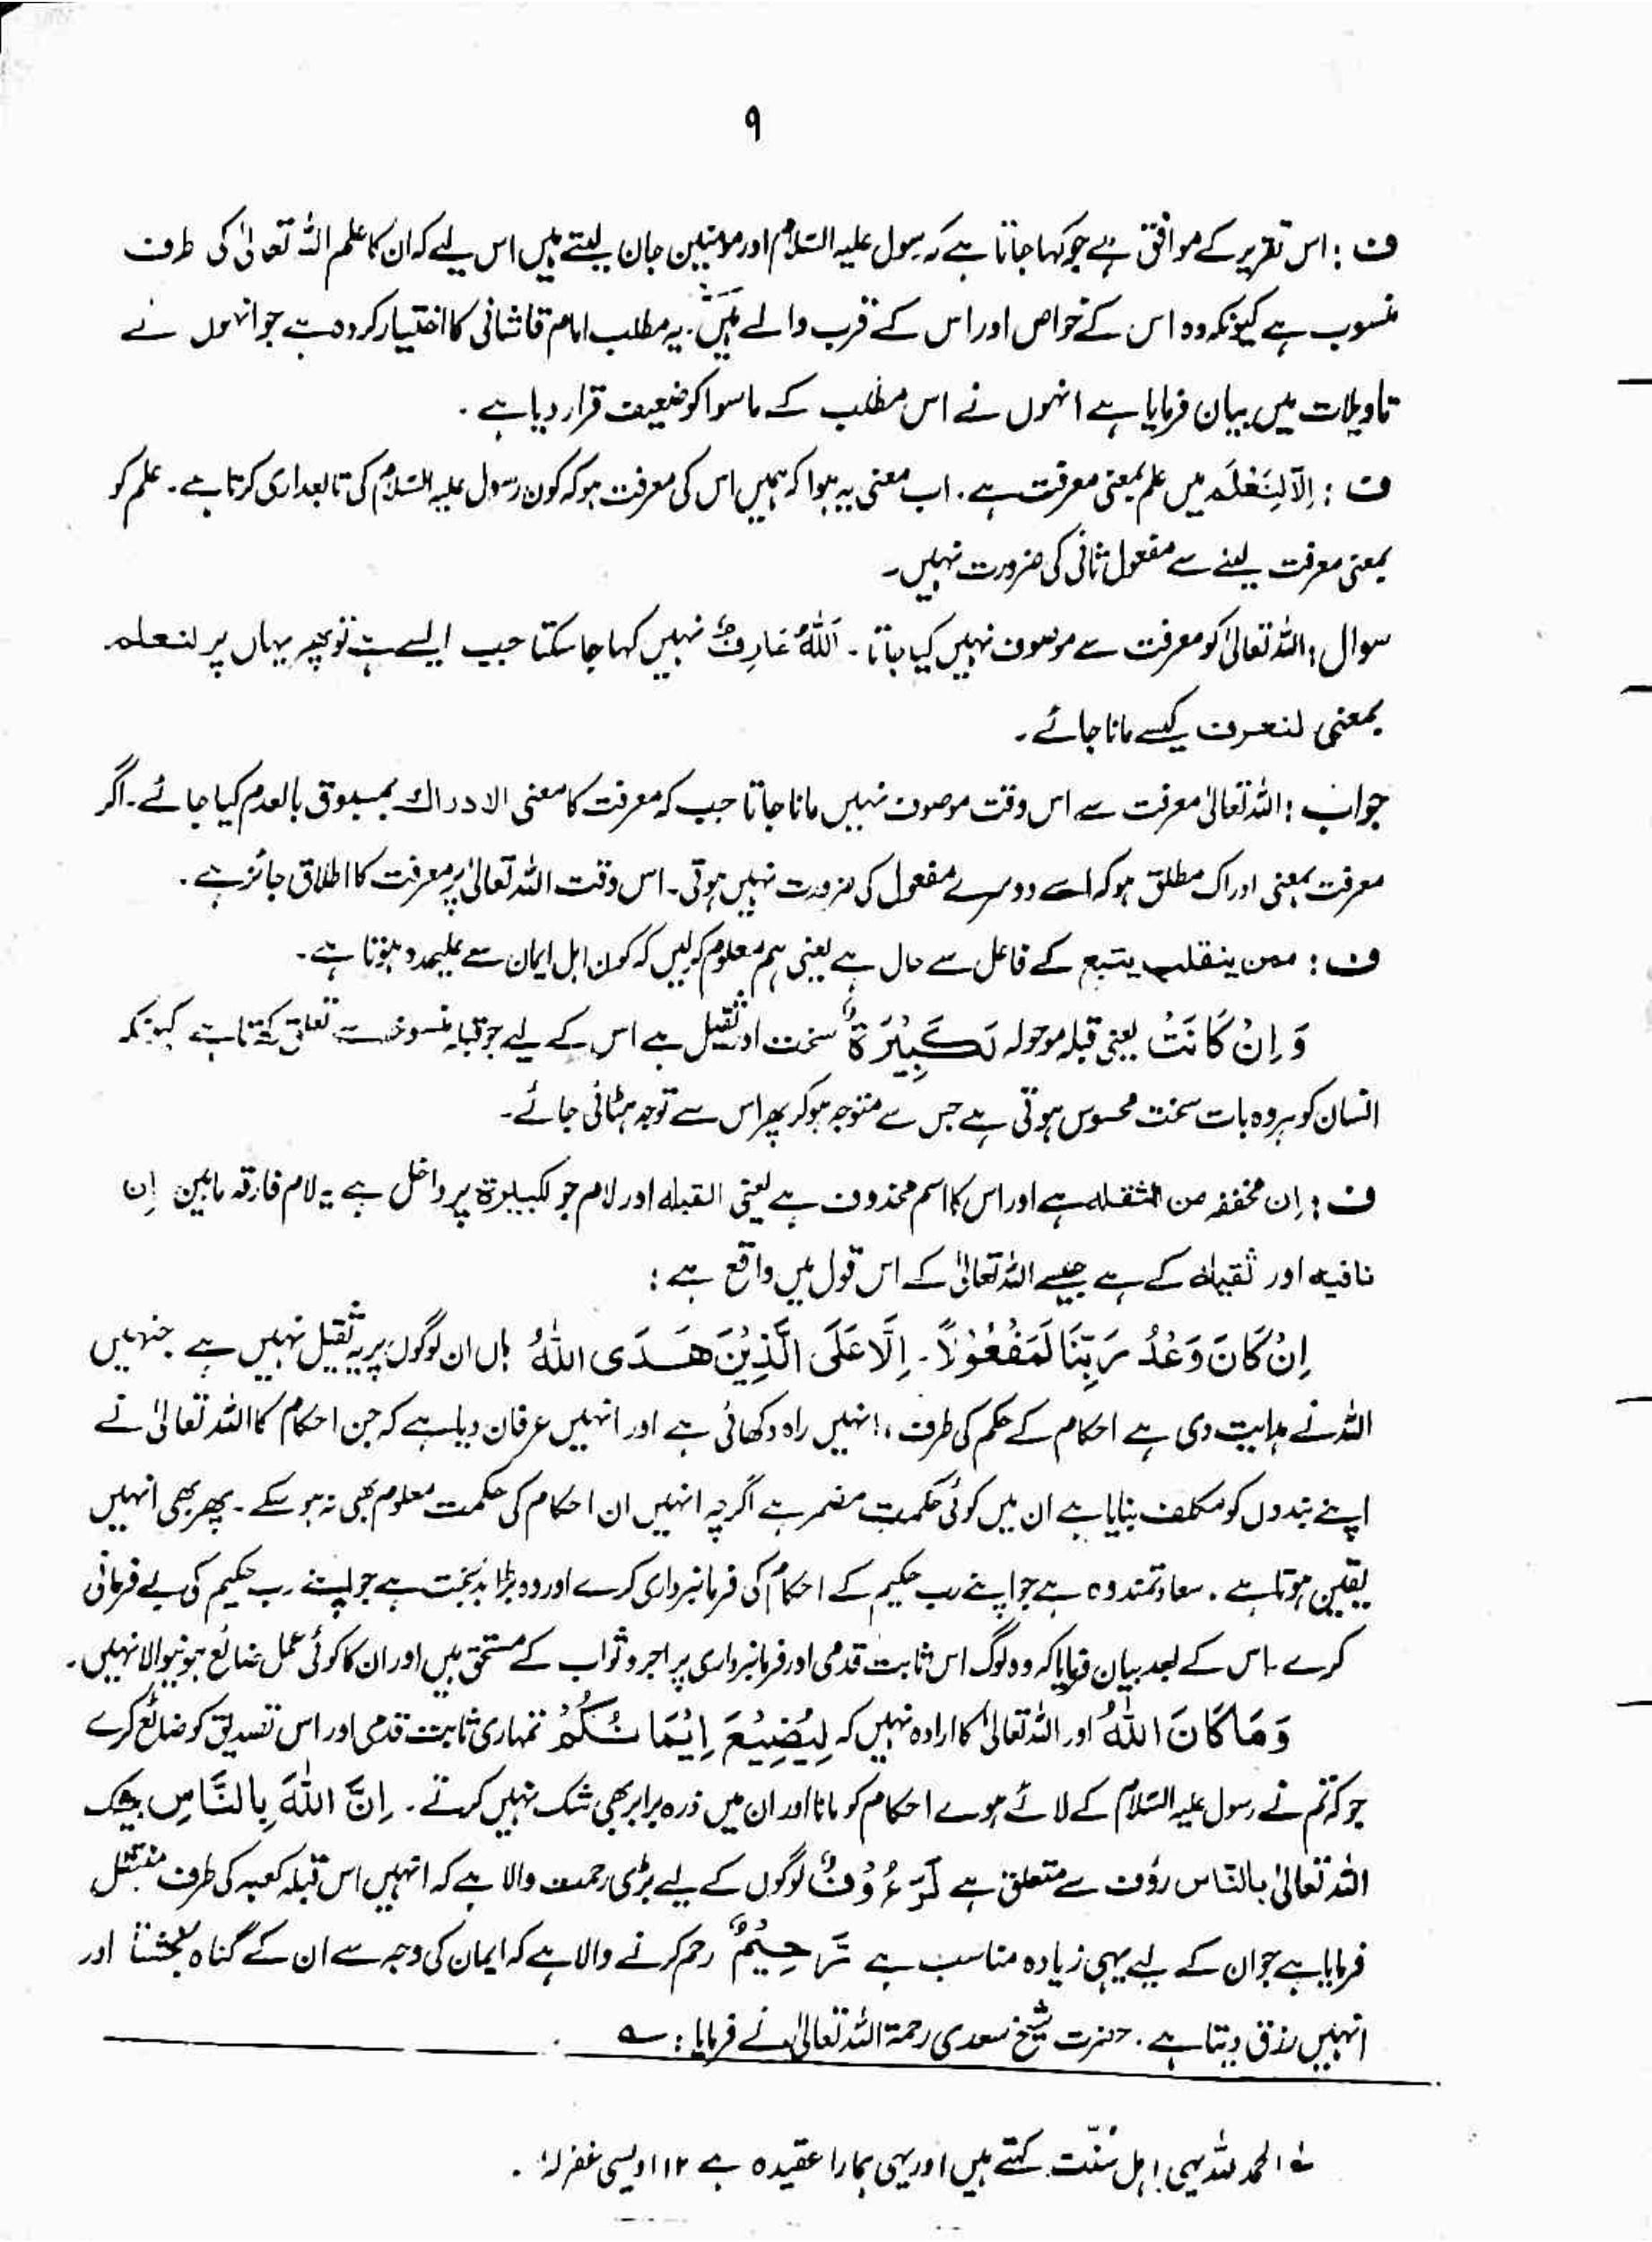 ۹
ف : اس تقریر کے موافق ہے جو کہا جاتا ہے کہ رسول علیہ السّلام اور مومنین جان لیتے ہیں اس لیے کہ ان کا علم اللہ تعالیٰ کی طرف
منسوب ہے کیونکہ وہ اس کے خواص اور اس کے قرب والے ہیں۔ یہ مطلب امام قاشانی کا اختیار کردہ ہے جو انہوں نے
تاویلات میں بیان فرمایا ہے انہوں نے اس مطلب کے ماسوا کو ضعیف قرار دیا ہے ۔
ف : اِلَّا لِنَعْلَمَ میں علم بمعنی معرفت ہے ۔ اب معنی یہ ہوا کہ ہمیں اس کی معرفت ہو کہ کون رسول علیہ السّلام کی تابعداری کرتا ہے ۔ علم کو
بمعنی معرفت لینے سے مفعول ثانی کی ضرورت نہیں ۔
سوال : اللہ تعالیٰ کو معرفت سے موصوف نہیں کیا جاتا ۔ اَللّٰهُ عَارِفٌ نہیں کہا جا سکتا جب ایسے ہے تو پھر یہاں پر لنعلم
بمعنی لنعرف کیسے مانا جائے ۔
جواب : اللہ تعالیٰ معرفت سے اس وقت موصوف نہیں مانا جاتا جب کہ معرفت کا معنی الادراك بمسبوق بالعدم کیا جائے ۔ اگر
معرفت بمعنی ادراک مطلق ہو کہ اسے دوسرے مفعول کی ضرورت نہیں ہوتی ۔ اس وقت اللہ تعالیٰ پر معرفت کا اطلاق جائز ہے ۔
ف : ممن ینقلب یتبع کے فاعل سے حال ہے یعنی ہم معلوم کر لیں کہ کون اہل ایمان سے علیحدہ ہوتا ہے ۔
وَ اِنْ كَانَتْ یعنی قبلہ موحولہ لَكَبِيْرَةً سخت اور ثقیل ہے اس کے لیے جو قبلہ منسوخہ سے تعلق رکھتا ہے کیونکہ
انسان کو ہر وہ بات سخت محسوس ہوتی ہے جس سے متوجہ ہو کر پھر اس سے توجہ ہٹائی جائے ۔
ف : اِن مخففہ من المثقلہ ہے اور اس کا اسم محذوف ہے یعنی القبلہ اور لام جو لكبیرة پر داخل ہے یہ لام فارقہ مابین اِن
نافیہ اور ثقیلہ کے ہے جیسے اللہ تعالیٰ کے اس قول میں واقع ہے :
اِنْ كَانَ وَعْدُ رَبِّنَا لَمَفْعُوْلًا ۔ اِلَّا عَلَى الَّذِيْنَ هَدَى اللّٰهُ ہاں ان لوگوں پر یہ ثقیل نہیں ہے جنہیں
اللہ نے ہدایت دی ہے احکام کے حکم کی طرف ، انہیں راہ دکھائی ہے اور انہیں عرفان دیا ہے کہ جن احکام کا اللہ تعالیٰ نے
اپنے بندوں کو مکلف بنایا ہے ان میں کوئی حکمت مضمر ہے اگرچہ انہیں ان احکام کی حکمت معلوم بھی نہ ہو سکے ۔ پھر بھی انہیں
یقین ہوتا ہے ۔ سعادتمند وہ ہے جو اپنے رب حکیم کے احکام کی فرمانبرداری کرے اور وہ بڑا بدبخت ہے جو اپنے رب حکیم کی بے فرمانی
کرے ۔ اس کے بعد بیان فرمایا کہ وہ لوگ اس ثابت قدمی اور فرمانبرداری پر اجر و ثواب کے مستحق ہیں اور ان کا کوئی عمل ضائع ہونیوالا نہیں ۔
وَمَا كَانَ اللّٰهُ اور اللہ تعالیٰ کا ارادہ نہیں کہ لِيُضِيْعَ اِيْمَانَكُمْ تمہاری ثابت قدمی اور اس تصدیق کو ضائع کرے
جو کہ تم نے رسول علیہ السّلام کے لائے ہوے احکام کو مانا اور ان میں ذرہ برابر بھی شک نہیں کرتے ۔ اِنَّ اللّٰهَ بِالنَّاسِ بیشک
اللہ تعالیٰ بالنّاس رؤف سے متعلق ہے لَرَءُوْفٌ لوگوں کے لیے بڑی رحمت والا ہے کہ انہیں اس قبلہ کعبہ کی طرف منتقل
فرمایا ہے جو ان کے لیے یہی زیادہ مناسب ہے رَّحِيْمٌ رحم کرنے والا ہے کہ ایمان کی وجہ سے ان کے گناہ بخشتا اور
انہیں رزق دیتا ہے ۔ حضرت شیخ سعدی رحمۃ اللہ تعالیٰ نے فرمایا : ؎
؂ الحمد للہ یہی اہل سُنّت کہتے ہیں اور یہی ہمارا عقیدہ ہے ۱۲ اویسی غفرلہٗ ۔